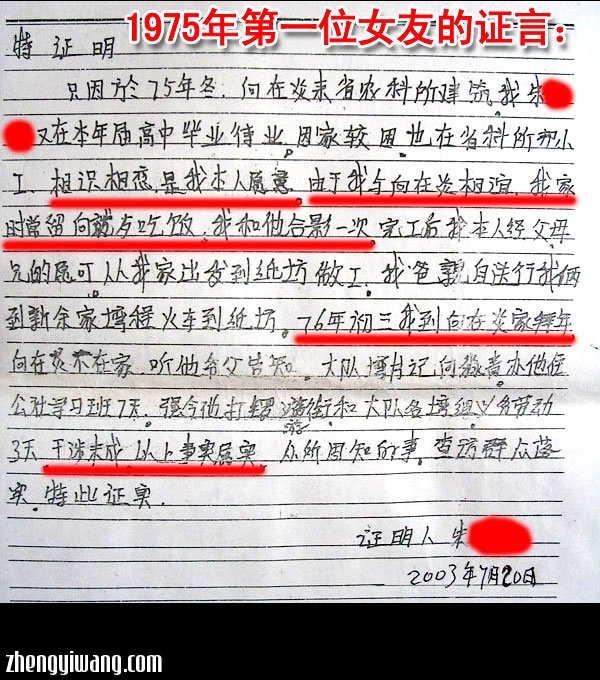 1975年第一位女友的证言：
特证明
只因於75年冬.向在炎来省农科所建筑.我朱
又在本年届高中毕业待业.因家较困也在省科所邦小
工.相识相恋是我本人愿意.由于我与向在炎相谊.我家
时常留向就歺吃饭.我和他合影一次.完工后我本人经父母
兄的愿可从我家出发到纸坊做工.我爸亲自送行我俩
到新余家塆程火车到纸坊.76年初三我到向在炎家拜年
向在炎不在家.听他爷父告知.大队塆片记向办他住
公社学习班7天.强令他打锣游街和大队各塆组义务劳动
3天.干涉未成.以上事实属实.众所周知的事.查访群众落
实.特此证实.
证明人 朱
2003年7月20日
zhengyiwang.com